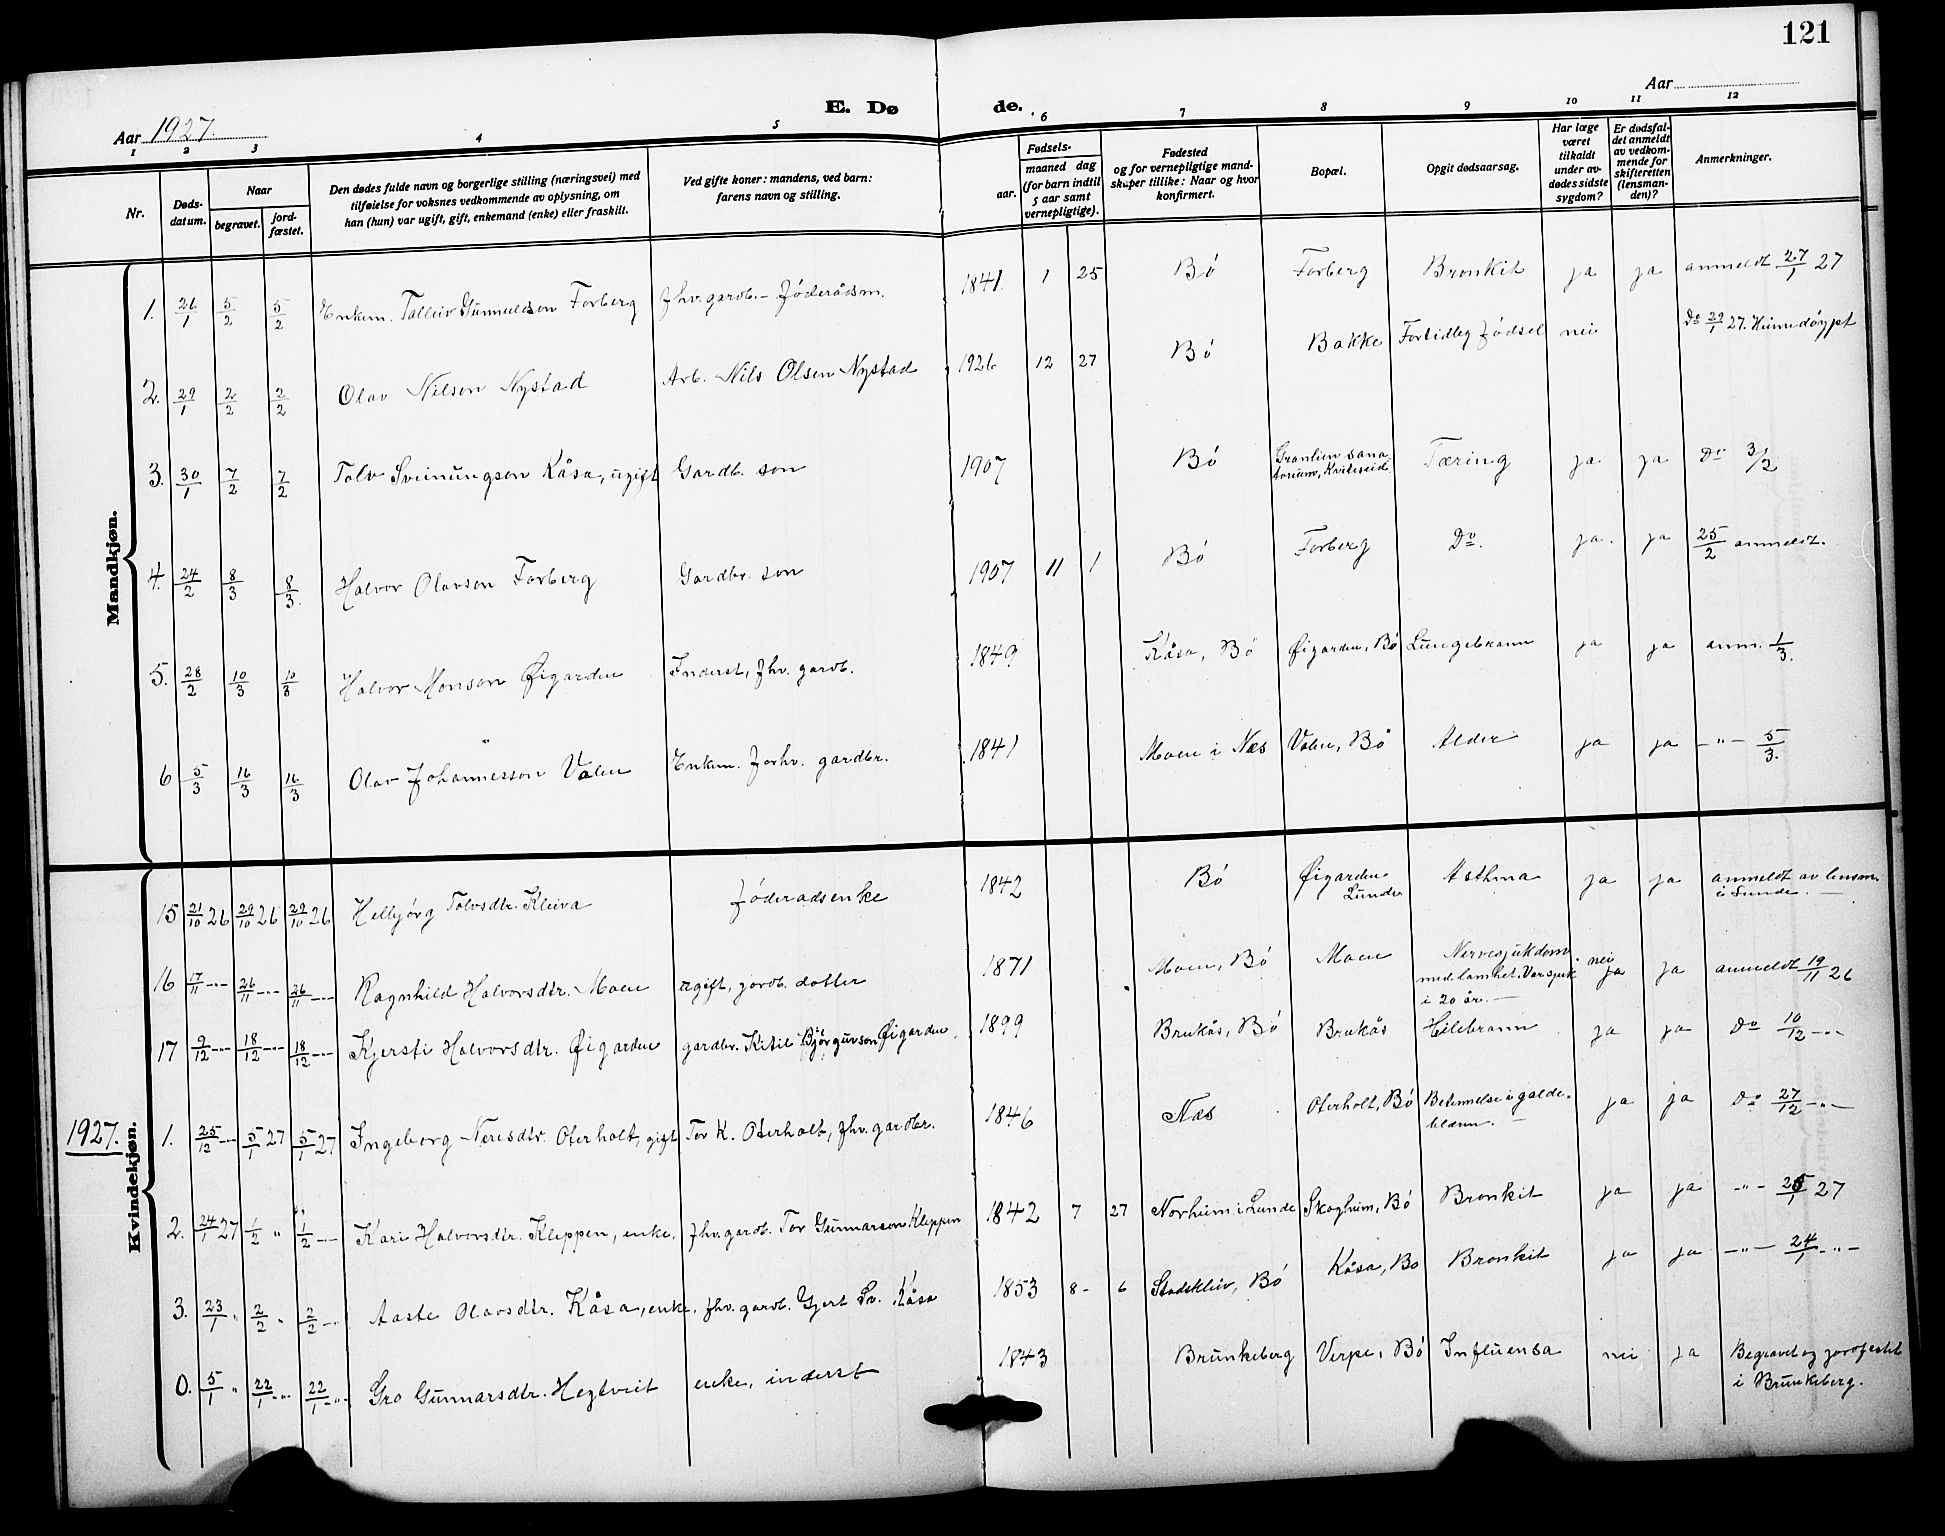 121
E. Døde.
Aar 1927.
Aar
1 2 3 4 5 6 7 8 9 10 11 12
Nr.
Døds-datum.
Naar
begravet.
jord-fæstet.
Den dødes fulde navn og borgerlige stilling (næringsvei) med
tilføielse for voksnes vedkommende av oplysning, om
han (hun) var ugift, gift, enkemand (enke) eller fraskilt.
Ved gifte koner: mandens, ved barn:
farens navn og stilling.
Fødsels-
aar.
maaned dag
(for barn indtil
5 aar samt
vernepligtige).
Fødested
og for vernepligtige mand-
skaper tillike: Naar og hvor
konfirmert.
Bopæl.
Opgit dødsaarsag.
Har læge
været
tilkaldt
under av-
dødes sidste
sygdom?
Er dødsfal-
det anmeldt
av vedkom-
mende for
skifteretten
(lensman-
den)?
Anmerkninger.
Mandkjøn.
1. 26/1 5/2 5/2 Enkem. Talleiv Gunnuldson Forberg fhv. gardb. - føderådsm. 1841 1 25 Bø Forberg Bronkit ja ja anmeldt 27/1 27
2. 29/1 2/2 2/2 Olav Nilson Nystad Arb. Nils Olsen Nystad 1926 12 27 Bø Bakke Fortidleg fødsel nei Do 29/1 27. Heimedøypt
3. 30/1 7/2 7/2 Tolv Sveinungson Kåsa, ugift Gardb. son 1907 Bø Granlien sana
torium, Kviteseid Tæring ja ja Do 3/2
4. 24/2 8/3 8/3. Halvor Olavson Forberg Gardbr. son 1907 11 1 Bø Forberg Do. ja. ja 25/2 anmeldt.
5. 28/2 10/3 10/3 Halvor Monson Øigarden Inderst, fhv. gardb. 1849 Kåsa, Bø Øigarden, Bø Lungebrann ja ja anm. 1/3.
6 5/3 16/3 16/3 Olav Johannesson Valen Enkem. Forhv. gardbr. 1841 Moen i Næs Valen, Bø Alder ja ja -"- 5/3.
Kvindekjøn.
15 21/10 26 29/10 26 29/10 26 Helbjørg Tolvsdtr. Kleiva føderadsenke 1842 Bø Øigarden
Lunde Asthma ja ja anmeldt av lensm.
i Lunde. -
16 17/11 -"- 26/11 -"- 26/11 -"- Ragnhild Halvorsdtr. Moen ugift, gardb. dotter 1871 Moen, Bø Moen Nervesjukdom
med lamhet. Var sjuk
i 20 år. - nei
ja ja anmeldt 19/11 26
17 9/12 -"- 18/12 -"- 18/12 -"- Kjersti Halvorsdtr. Øigarden gardbr. Kitil Bjørguvson Øigarden. 1899 Brukås, Bø Brukås Hilebrann ja ja Do 10/12 -"-
1927.
1. 25/12 -"- 5/1 27 5/1 27 Ingeborg Neresdtr. Oterholt, gift Tor K. Oterholt, fhv. gardbr. 1846 Næs Oterholt, Bø Betennelse i galde-
blæren. - ja ja Do 27/12 -"-
2. 24/1 27 1/2 " 1/2 - Kari Halvorsdtr. Kleppen, enke. fhv. gardb. Tor Gunnarson Kleppen 1842 7 27 Norheim i Lunde Skogheim, Bø Bronkit ja ja -"- 25/1 27
3. 23/1 " 2/2 " 2/2 -"- Aaste Olavsdtr. Kåsa, enke. fhv. gardb. Gjert Sv. Kåsa 1853 8 - 6 Stadskleiv, Bø Kåsa, Bø Bronkit ja ja -"- 24/1 -"-
0. 5/1 " 22/1 -"- 22/1 -"- Gro Gunnarsdtr. Hegtveit enke, inderst 1843 Brunkeberg Verpe, Bø Influensa nei ja Begravet og jordfestet
i Brunkeberg.